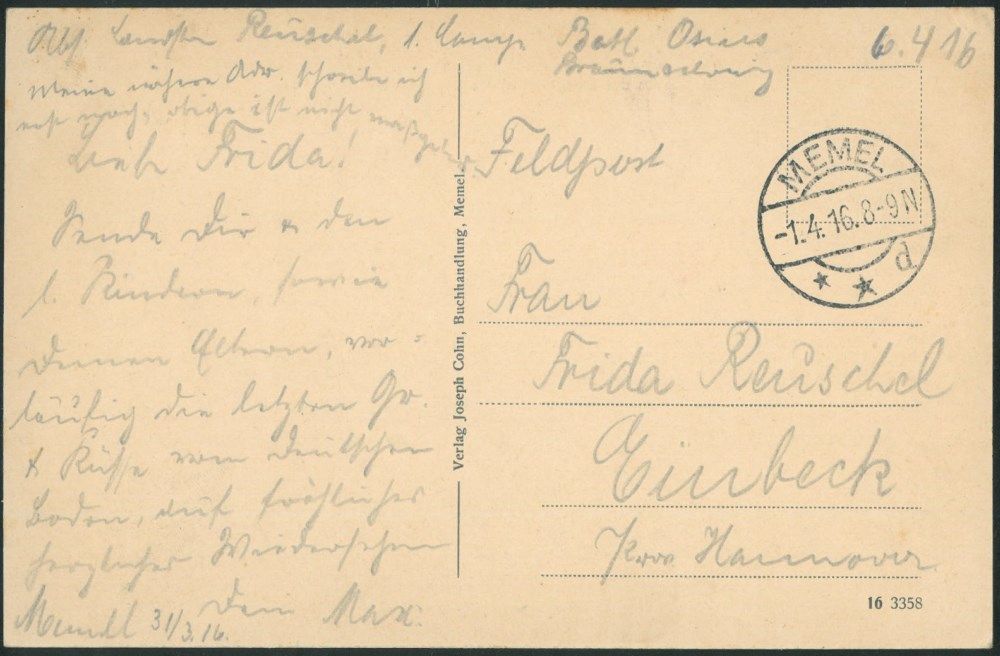 Abs. Landstm Reuschel, 1. Comp. Batl
Braunschweig
6.4 16
Meine nähere Adr. schreibe ich
erst noch, obige ist nicht maßgebend
Lieb. Frida!
Sende Dir & den
l. Kindern, sowie
Deinen Eltern, vor=
läufig die letzten Gr.
& Küsse vom deutschen
Boden, auf fröhliches
herzliches Wiedersehen
Dein Max.
Memel 31/3.16.
Verlag Joseph Cohn, Buchhandlung, Memel.
Feldpost
MEMEL
-1.4.16.8-9N
* * d
Frau
Frida Reuschel
Einbeck
Prov. Hannover
16 3358